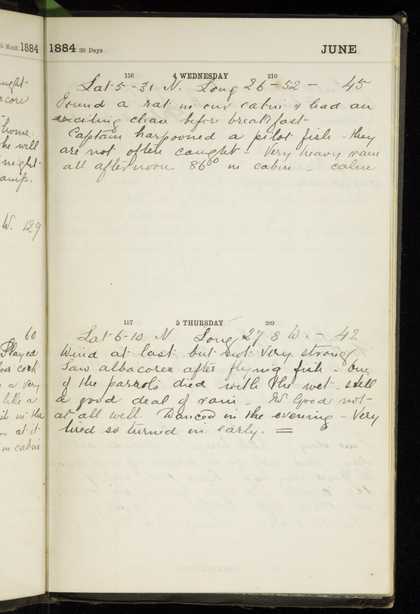 1884
1884 30 Days
JUNE
156 4 WEDNESDAY 210
Lat 5-31 N. Long 26-52 - 45
Found a rat in our cabin & had an
exciting chase before breakfast
Captain harpooned a pilot fish - they
are not often caught - Very heavy rain
all afternoon 86° in cabin - calm
W. 129
157 5 THURSDAY 209
Lat 6-10 N Long 27 8 W. - 42
Wind at last but not very strong
Saw albacores after flying fish - One
of the parrots died with the wet - still
a good deal of rain - Good not
at all well Danced in the evening - Very
tired so turned in early. =
60
Played
a very
like a
in the
at it
in cabin